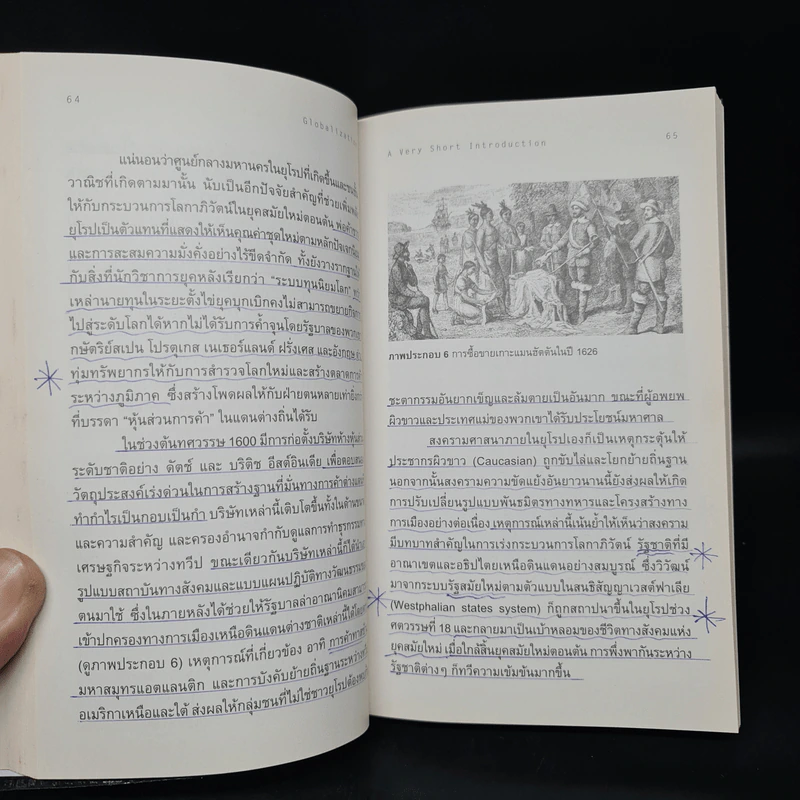 64
Globalization
แน่นอนว่าศูนย์กลางมหานครในยุโรปที่เกิดขึ้นและชนชั้น
วาณิชที่เกิดตามมานั้น นับเป็นอีกปัจจัยสำคัญที่ช่วยเพิ่มพลัง
ให้กับกระบวนการโลกาภิวัตน์ในยุคสมัยใหม่ตอนต้น พ่อค้าชาว
ยุโรปเป็นตัวแทนที่แสดงให้เห็นคุณค่าชุดใหม่ตามหลักปัจเจกนิยม
และการสะสมความมั่งคั่งอย่างไร้ขีดจำกัด ทั้งยังวางรากฐานให้
กับสิ่งที่นักวิชาการยุคหลังเรียกว่า “ระบบทุนนิยมโลก”
เหล่านายทุนในระยะตั้งไข่ยุคบุกเบิกคงไม่สามารถขยายกิจการ
ไปสู่ระดับโลกได้หากไม่ได้รับการค้ำจุนโดยรัฐบาลของพวกเขา
กษัตริย์สเปน โปรตุเกส เนเธอร์แลนด์ ฝรั่งเศส และอังกฤษ
ทุ่มทรัพยากรให้กับการสำรวจโลกใหม่และสร้างตลาดการค้า
ระหว่างภูมิภาค ซึ่งสร้างโพดผลให้กับฝ่ายตนหลายเท่ายิ่งกว่า
ที่บรรดา “หุ้นส่วนการค้า” ในแดนต่างถิ่นได้รับ
ในช่วงต้นทศวรรษ 1600 มีการก่อตั้งบริษัทห้างหุ้นส่วน
ระดับชาติอย่าง ดัตช์ และ บริติช อีสต์อินเดีย เพื่อตอบสนอง
วัตถุประสงค์เร่งด่วนในการสร้างฐานที่มั่นทางการค้าต่างแดน
ทำกำไรเป็นกอบเป็นกำ บริษัทเหล่านี้เติบโตขึ้นทั้งในด้านขนาด
และความสำคัญ และครองอำนาจกำกับดูแลการทำธุรกรรมทาง
เศรษฐกิจระหว่างทวีป ขณะเดียวกันบริษัทเหล่านี้ก็ได้นำ
รูปแบบสถาบันทางสังคมและแบบแผนปฏิบัติทางวัฒนธรรมของ
ตนมาใช้ ซึ่งในภายหลังได้ช่วยให้รัฐบาลล่าอาณานิคมสามารถ
เข้าปกครองทางการเมืองเหนือดินแดนต่างชาติเหล่านี้ได้โดยตรง
(ดูภาพประกอบ 6) เหตุการณ์ที่เกี่ยวข้อง อาทิ การค้าทาส
มหาสมุทรแอตแลนติก และการบังคับย้ายถิ่นฐานระหว่าง
อเมริกาเหนือและใต้ ส่งผลให้กลุ่มชนที่ไม่ใช่ชาวยุโรปต้อง
A Very Short Introduction
65
ภาพประกอบ 6 การซื้อขายเกาะแมนฮัตตันในปี 1626
ชะตากรรมอันยากเข็ญและล้มตายเป็นอันมาก ขณะที่ผู้อพยพ
ผิวขาวและประเทศแม่ของพวกเขาได้รับประโยชน์มหาศาล
สงครามศาสนาภายในยุโรปเองก็เป็นเหตุกระตุ้นให้
ประชากรผิวขาว (Caucasian) ถูกขับไล่และโยกย้ายถิ่นฐาน
นอกจากนั้นสงครามความขัดแย้งอันยาวนานนี้ยังส่งผลให้เกิด
การปรับเปลี่ยนรูปแบบพันธมิตรทางทหารและโครงสร้างทาง
การเมืองอย่างต่อเนื่อง เหตุการณ์เหล่านี้เน้นย้ำให้เห็นว่าสงคราม
มีบทบาทสำคัญในการเร่งกระบวนการโลกาภิวัตน์ รัฐชาติที่มี
อาณาเขตและอธิปไตยเหนือดินแดนอย่างสมบูรณ์ ซึ่งวิวัฒน์
มาจากระบบรัฐสมัยใหม่ตามตัวแบบในสนธิสัญญาเวสต์ฟาเลีย
(Westphalian states system) ก็ถูกสถาปนาขึ้นในยุโรปช่วง
ศตวรรษที่ 18 และกลายมาเป็นเบ้าหลอมของชีวิตทางสังคมแห่ง
ยุคสมัยใหม่ เมื่อใกล้สิ้นยุคสมัยใหม่ตอนต้น การพึ่งพากันระหว่าง
รัฐชาติต่างๆ ก็ทวีความเข้มข้นมากขึ้น